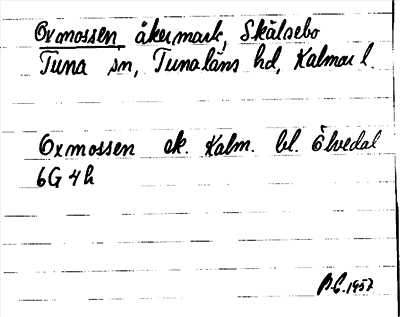 Oxmossen, åkermark, Skälsebo
Tuna sn, Tunaläns hd, Kalmar l.
Oxmossen ek. Kalm. bl. Ölvedal
6G 4h
1957